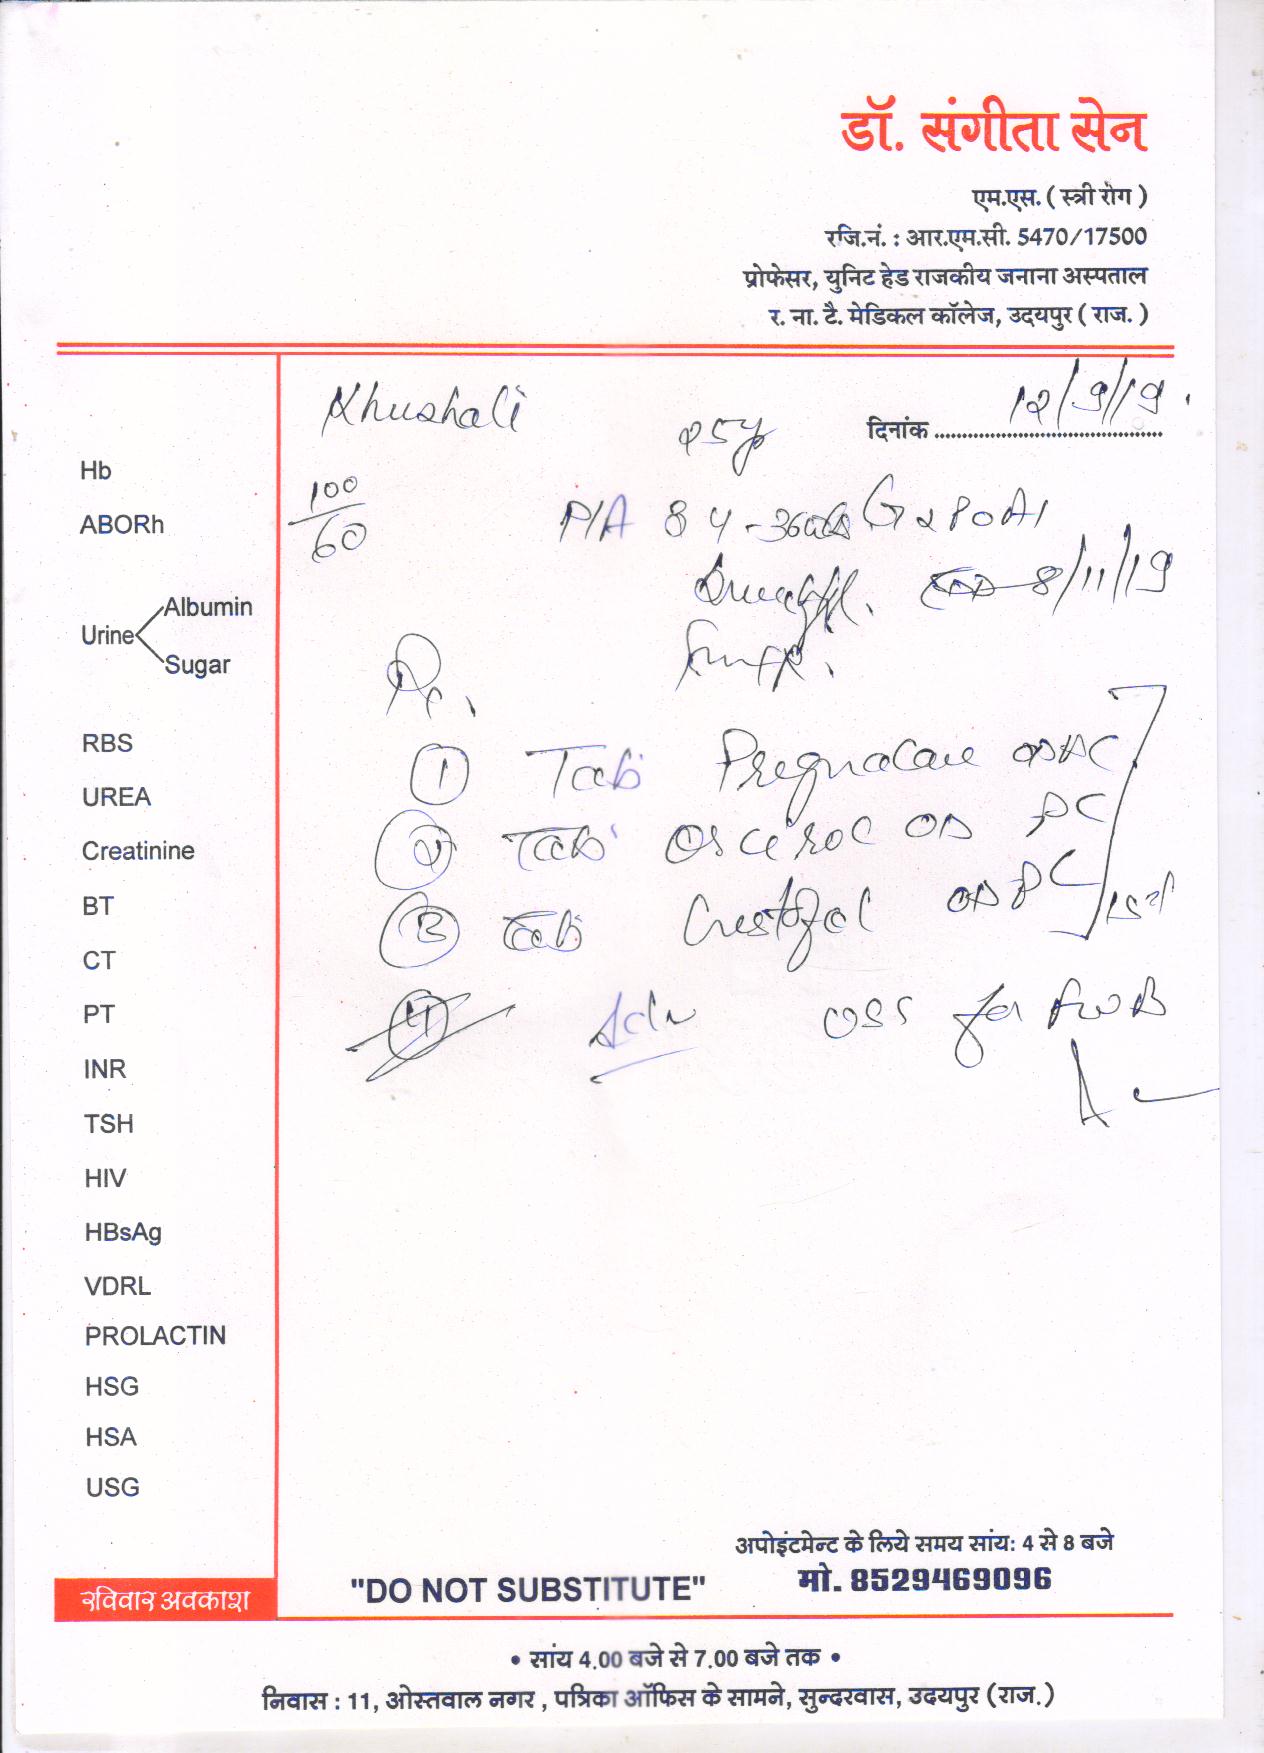 डॉ. संगीता सेन
एम.एस. ( स्त्री रोग )
रजि.नं. : आर.एम.सी. 5470/17500
प्रोफेसर, युनिट हेड राजकीय जनाना अस्पताल
र. ना. टै. मेडिकल कॉलेज, उदयपुर ( राज. )
Khushali 25y दिनांक 12/9/19.
Hb
100/60 P/A 34-36wks G2P0A1
ABORh
8/11/19
Urine Albumin
Sugar
Rx.
RBS
① Tab Pregnacare OD AC
UREA
② Tab OD PC
Creatinine
③ Tab OD PC
BT
CT
PT
④ Adv for FWB
INR
TSH
HIV
HBsAg
VDRL
PROLACTIN
HSG
HSA
USG
अपोइंटमेन्ट के लिये समय सांय: 4 से 8 बजे
"DO NOT SUBSTITUTE" मो. 8529469096
रविवार अवकाश
• सांय 4.00 बजे से 7.00 बजे तक •
निवास : 11, ओस्तवाल नगर , पत्रिका ऑफिस के सामने, सुन्दरवास, उदयपुर (राज.)